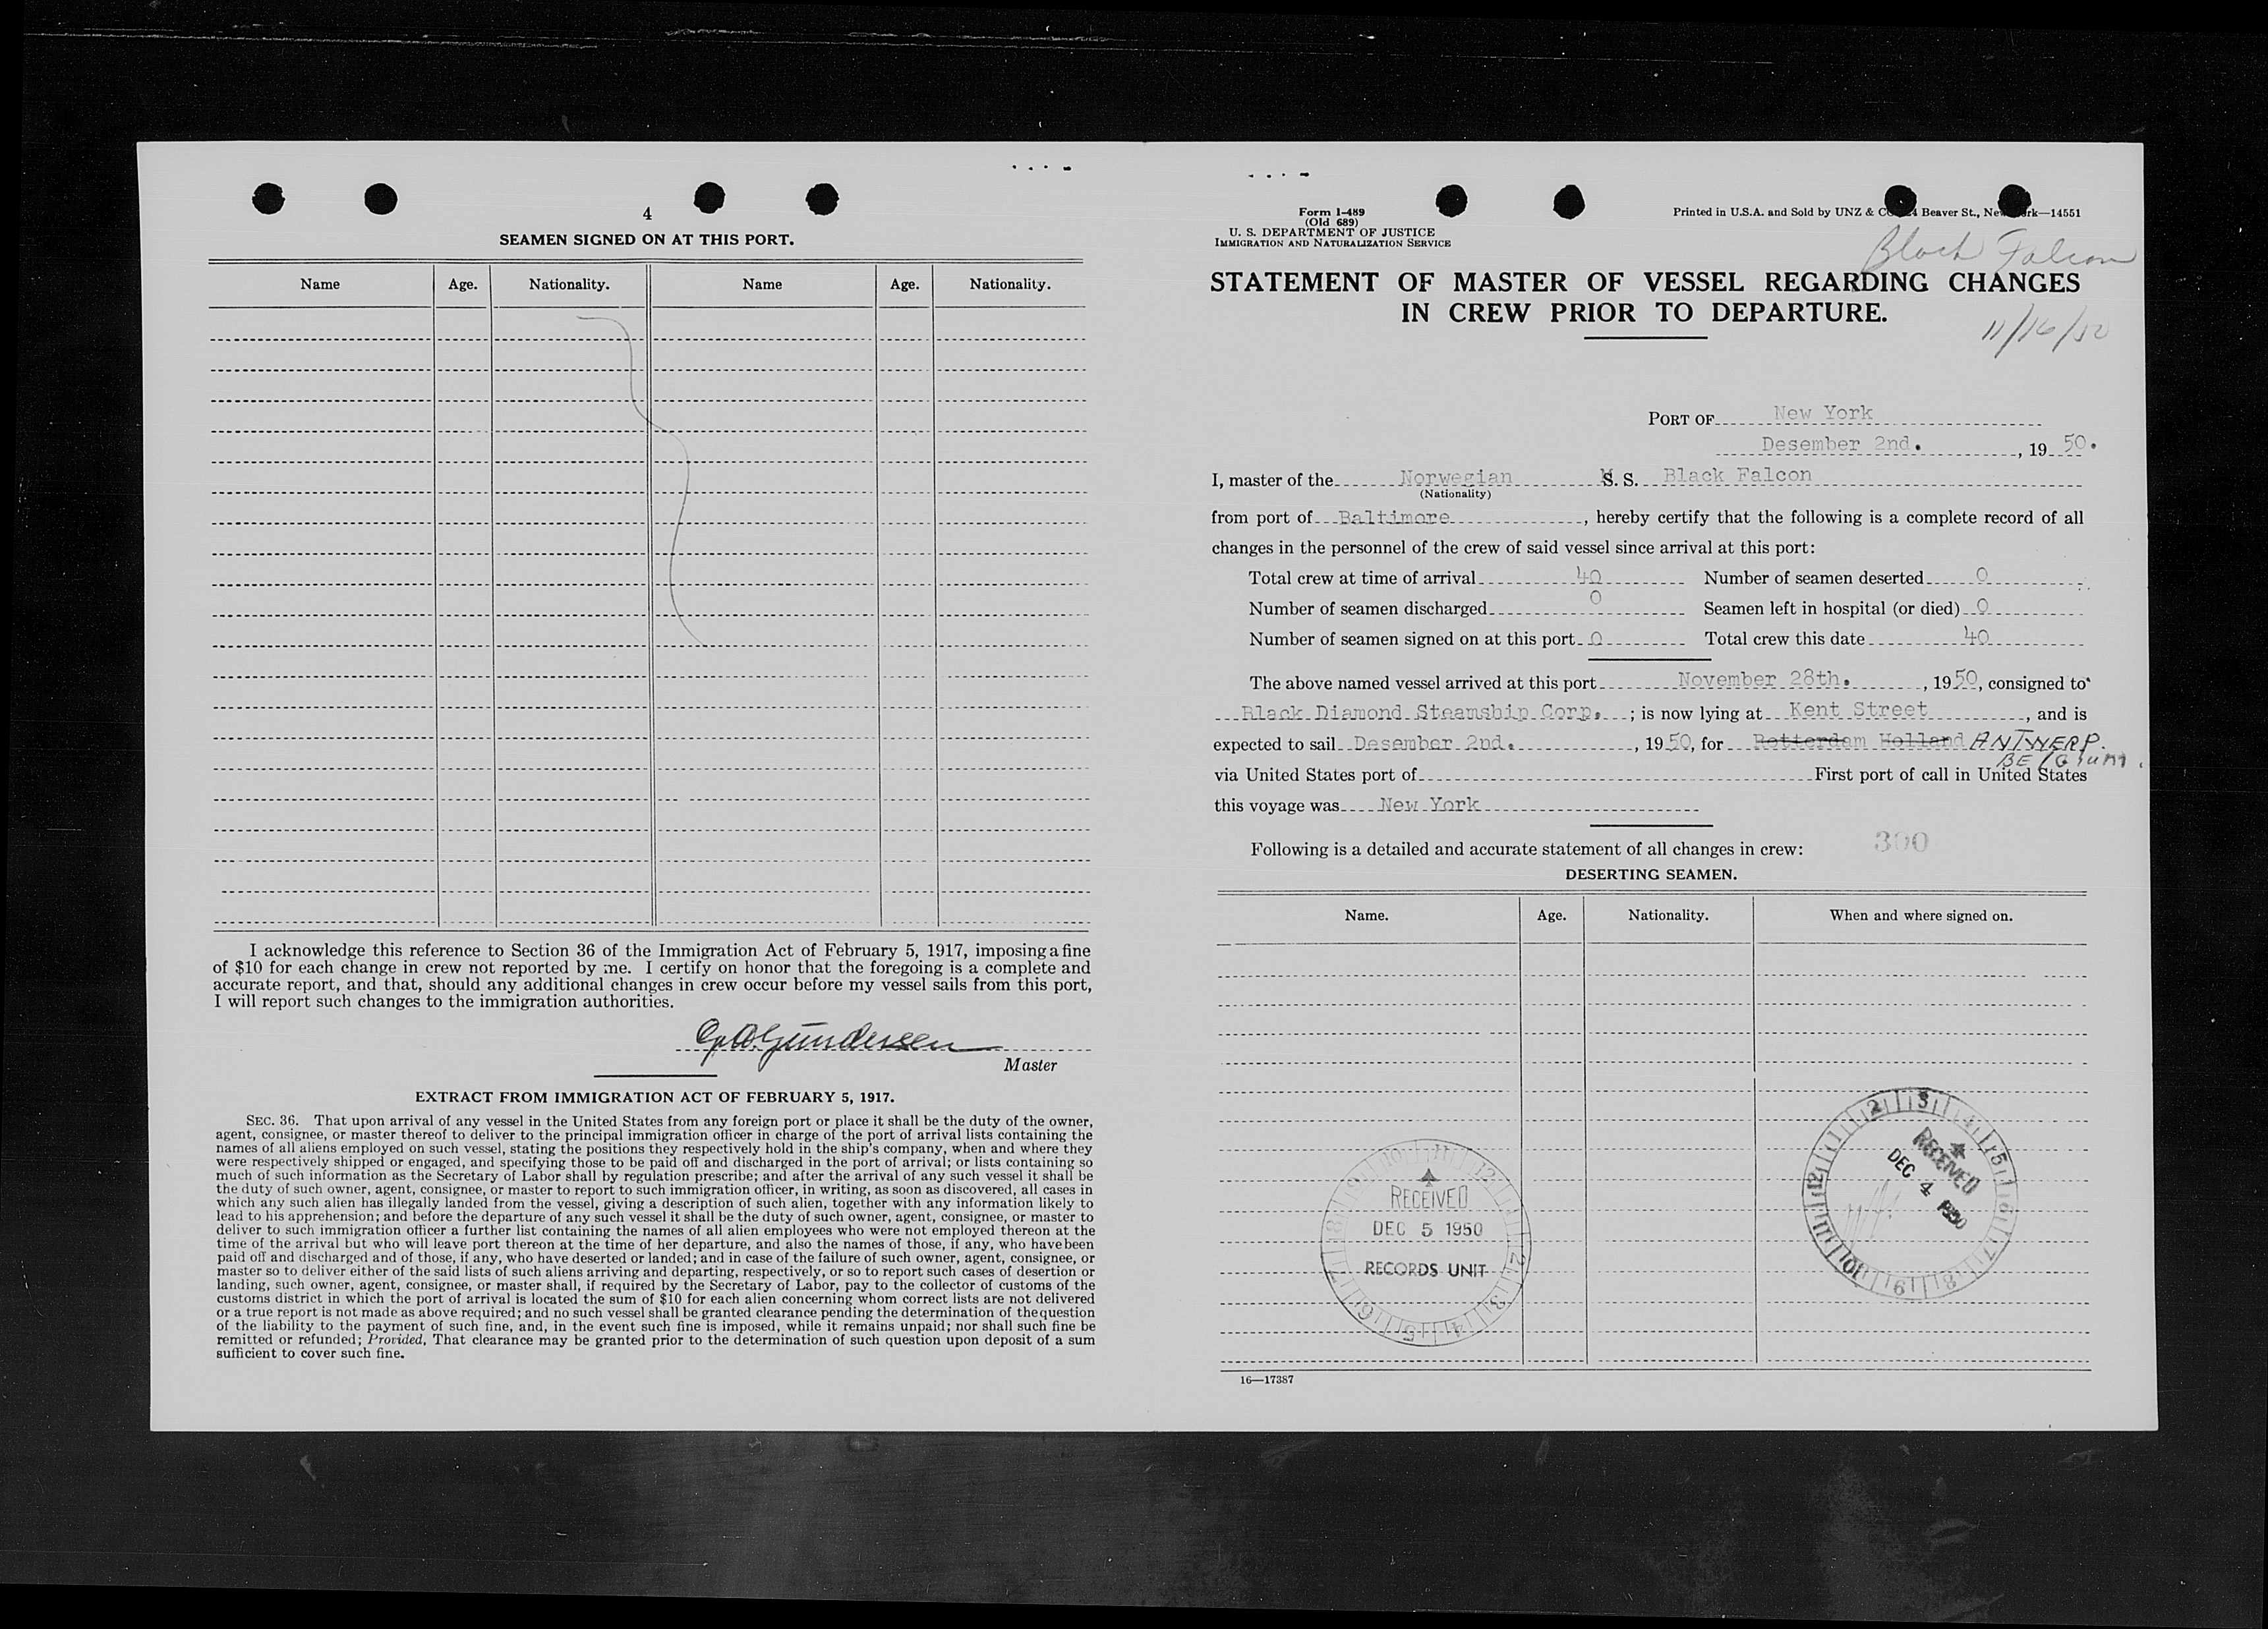 4
SEAMEN SIGNED ON AT THIS PORT.
Name Age. Nationality. Name Age. Nationality.
I acknowledge this reference to Section 36 of the Immigration Act of February 5, 1917, imposing a fine
of $10 for each change in crew not reported by me. I certify on honor that the foregoing is a complete and
accurate report, and that, should any additional changes in crew occur before my vessel sails from this port,
I will report such changes to the immigration authorities.
Gundersen
Master
EXTRACT FROM IMMIGRATION ACT OF FEBRUARY 5, 1917.
SEC. 36. That upon arrival of any vessel in the United States from any foreign port or place it shall be the duty of the owner,
agent, consignee, or master thereof to deliver to the principal immigration officer in charge of the port of arrival lists containing the
names of all aliens employed on such vessel, stating the positions they respectively hold in the ship's company, when and where they
were respectively shipped or engaged, and specifying those to be paid off and discharged in the port of arrival; or lists containing so
much of such information as the Secretary of Labor shall by regulation prescribe; and after the arrival of any such vessel it shall be
the duty of such owner, agent, consignee, or master to report to such immigration officer, in writing, as soon as discovered, all cases in
which any such alien has illegally landed from the vessel, giving a description of such alien, together with any information likely to
lead to his apprehension; and before the departure of any such vessel it shall be the duty of such owner, agent, consignee, or master to
deliver to such immigration officer a further list containing the names of all alien employees who were not employed thereon at the
time of the arrival but who will leave port thereon at the time of her departure, and also the names of those, if any, who have been
paid off and discharged and of those, if any, who have deserted or landed; and in case of the failure of such owner, agent, consignee, or
master so to deliver either of the said lists of such aliens arriving and departing, respectively, or so to report such cases of desertion or
landing, such owner, agent, consignee, or master shall, if required by the Secretary of Labor, pay to the collector of customs of the
customs district in which the port of arrival is located the sum of $10 for each alien concerning whom correct lists are not delivered
or a true report is not made as above required; and no such vessel shall be granted clearance pending the determination of the question
of the liability to the payment of such fine, and, in the event such fine is imposed, while it remains unpaid; nor shall such fine be
remitted or refunded; Provided, That clearance may be granted prior to the determination of such question upon deposit of a sum
sufficient to cover such fine.
Form I-489
(Old 689)
U. S. DEPARTMENT OF JUSTICE
IMMIGRATION AND NATURALIZATION SERVICE
Printed in U.S.A. and Sold by UNZ & Beaver St., —14551
Black Falcon
STATEMENT OF MASTER OF VESSEL REGARDING CHANGES
IN CREW PRIOR TO DEPARTURE.
11/16/50
PORT OF New York
Desember 2nd. , 19 50.
I, master of the Norwegian S. S. Black Falcon
(Nationality)
from port of Baltimore , hereby certify that the following is a complete record of all
changes in the personnel of the crew of said vessel since arrival at this port:
Total crew at time of arrival 40 Number of seamen deserted 0
Number of seamen discharged 0 Seamen left in hospital (or died) 0
Number of seamen signed on at this port 0 Total crew this date 40
The above named vessel arrived at this port November 28th. , 1950, consigned to
Black Diamond Steamship Corp. ; is now lying at Kent Street , and is
expected to sail Desember 2nd. , 19 50, for Rotterdam Holland ANTWERP.
BELGIUM.
via United States port of First port of call in United States
this voyage was New York
Following is a detailed and accurate statement of all changes in crew: 300
DESERTING SEAMEN.
Name. Age. Nationality. When and where signed on.
RECEIVED
DEC 5 1950
RECORDS UNIT
RECEIVED
DEC 4 1950
16—17387